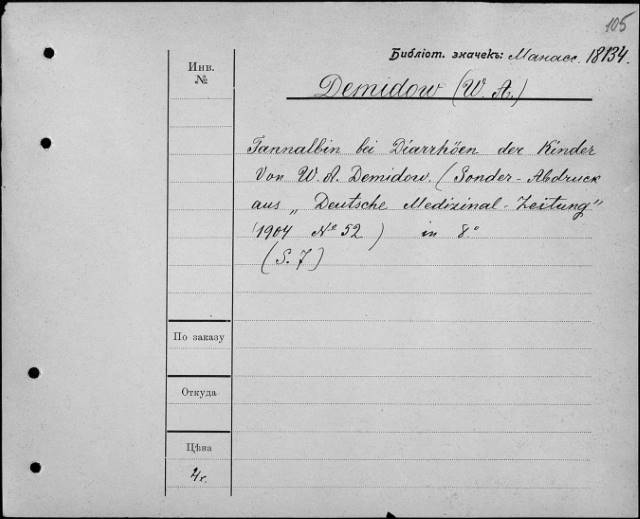 105
Библіот. значекъ: Манасс. 18134.
Инв.
№
Demidow (W. A.)
Tannalbin bei Diarrhöen der Kinder
Von W. A. Demidow. (Sonder-Abdruck
aus „Deutsche Medizinal-Zeitung"
(1904 № 52) in 8°
(S. 7)
По заказу
Откуда
Цѣна